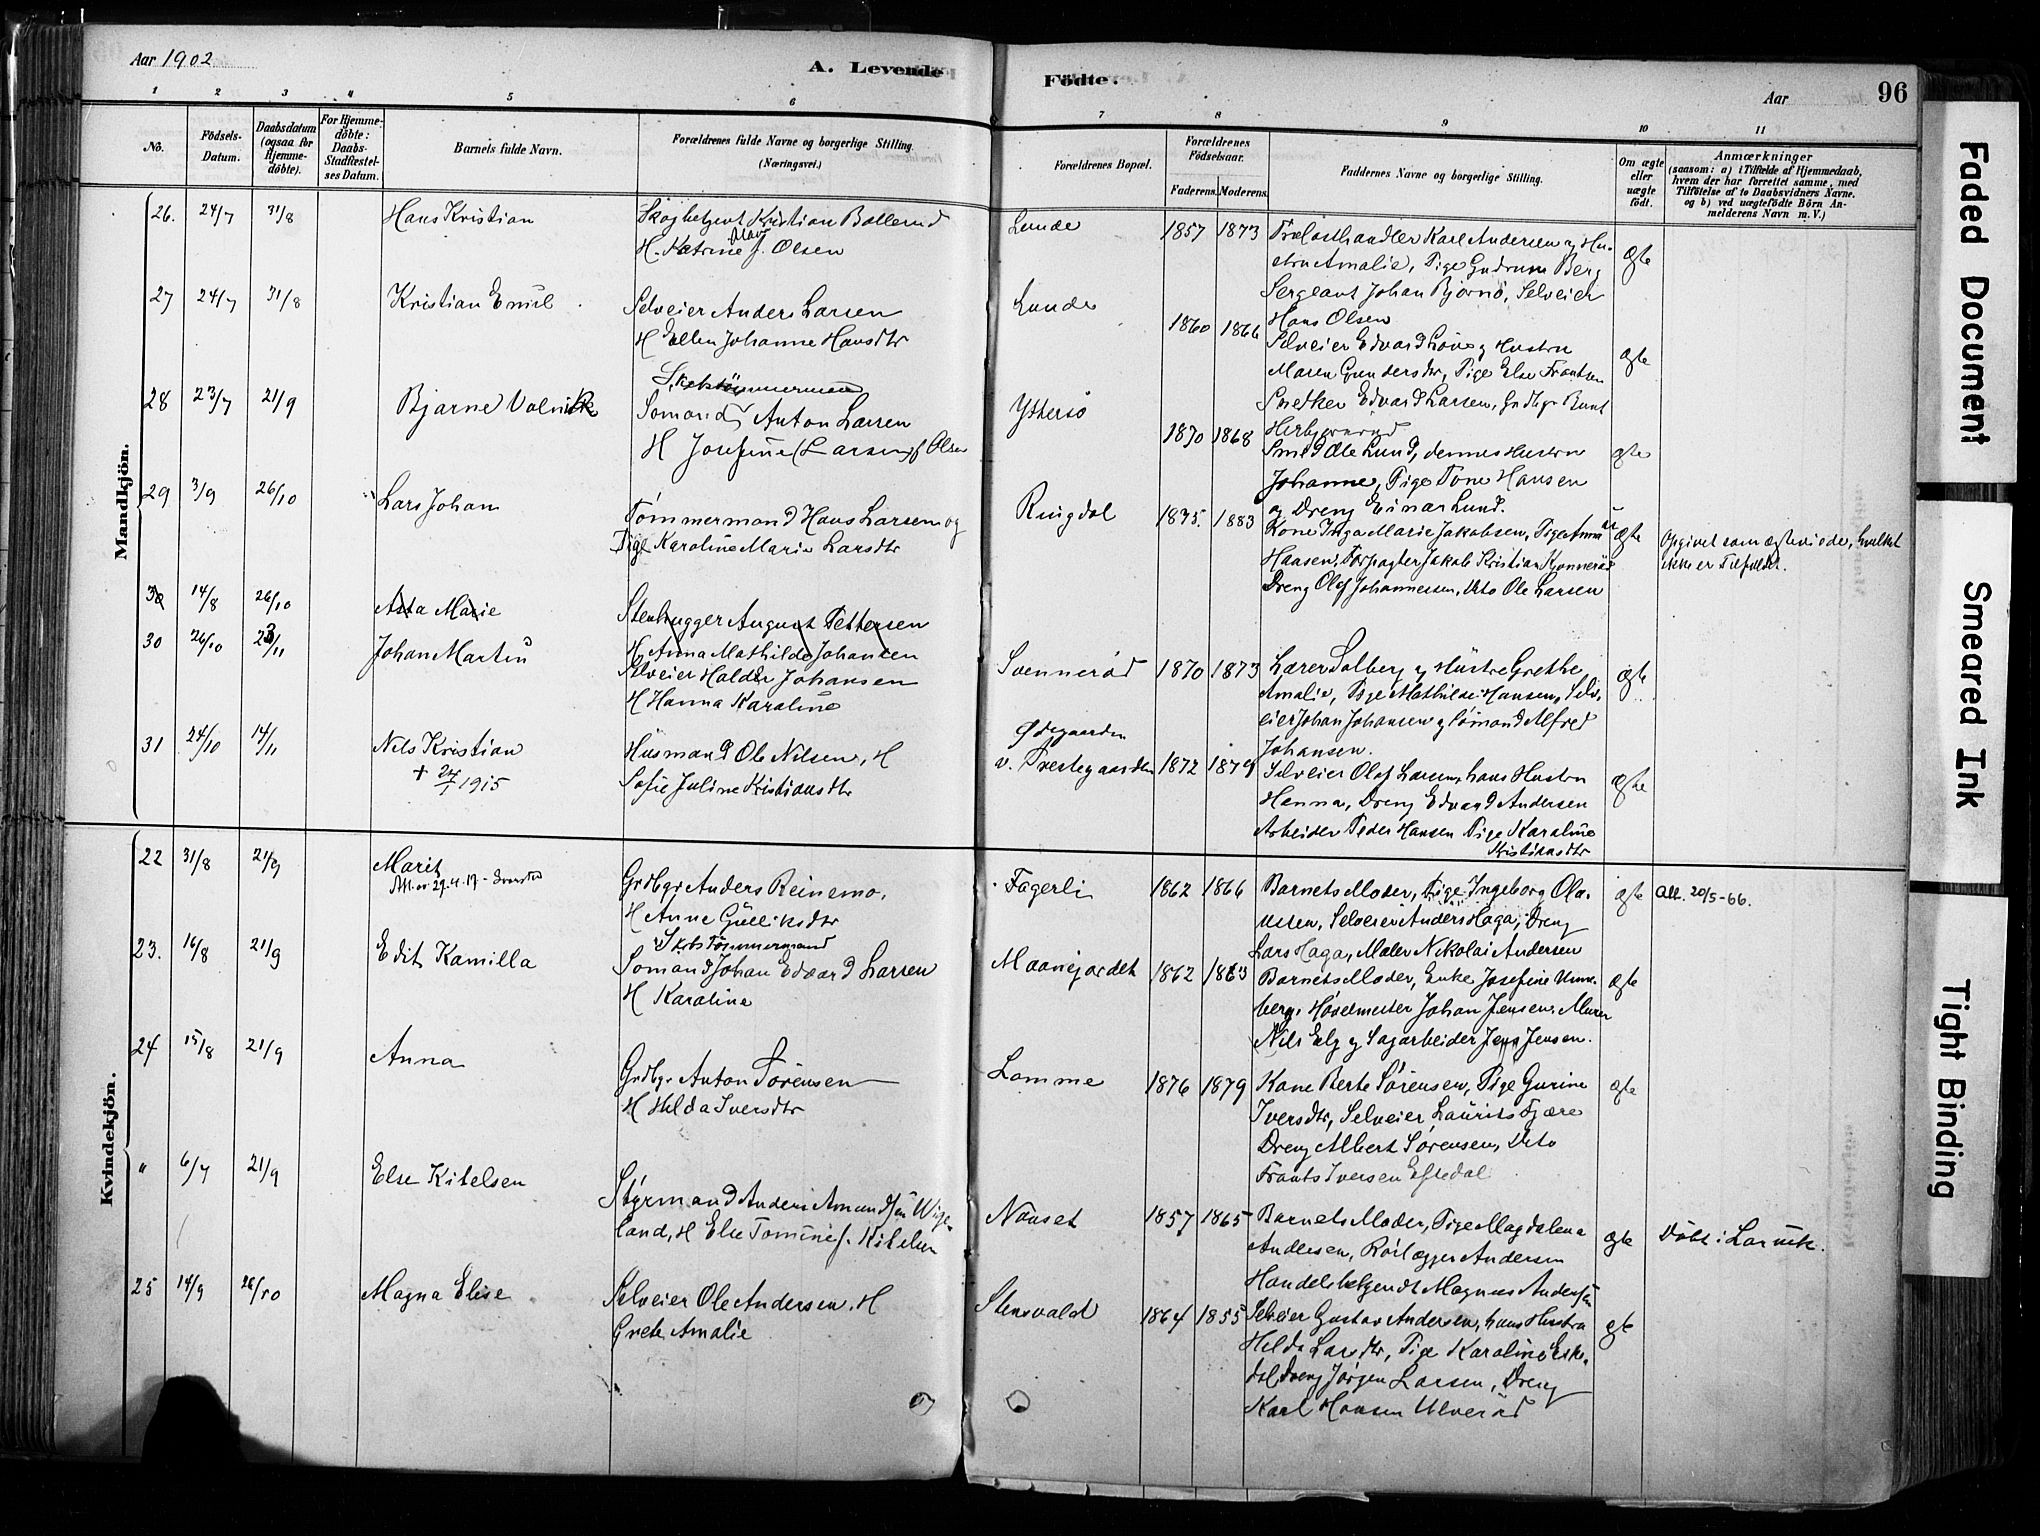 Aar 1902
A. Levende Födte.
Aar
96
1 2 3 4 5 6 7 8 9 10 11
No.
Födsels-Datum.
Daabsdatum (ogsaa for Hjemme-döbte).
For Hjemme-döbte: Daabs-Stadfæstel-ses Datum.
Barnets fulde Navn.
Forældrenes fulde Navne og borgerlige Stilling.
(Næringsvei.)
Forældrenes Bopæl.
Forældrenes Födselsaar.
Faderens. Moderens.
Faddernes Navne og borgerlige Stilling.
Om ægte eller uægte födt.
Anmærkninger
(saasom: a) i Tilfælde af Hjemmedaab, hvem der har forrettet samme, med Tilföielse af to Daabsvidners Navne. og b) ved uægtefödte Börn Anmelderens Navn m. V.)
Mandkjön.
26. 24/7 31/8 Hans Kristian
Skogbetjent Kristian Bollerud
H. Katrine Mar. f. Olsen
Lunde 1857 1873
Trælasthandler Karl Andersen og Hu-
stru Amalie, Pige Gudrun Berg
Sergeant Johan Bjørnö, Selveier
Hans Olsen
ægte
27 24/7 31/8 Kristian Emil
Selveier Anders Larsen
H Ellen Johanne Hansdtr
Lunde 1860 1866
Selveier Edvard Løve og Hustru
Maren Gundersdtr, Pige Else Frantsen
Snedker Edvard Larsen, Gudbgr Bernt
Herbjørnrud
ægte
28 23/7 21/9 Bjarne Valvik
Skibstömmermand
Sömand Anton Larsen
H Josefine (Larsen) f Olsen
Yttersö 1870 1868
Smed Ole Lund, dennes Hustru
Johanne, Pige Tone Hansen
og Dreng Einar Lund.
ægte
29 3/9 26/10 Lars Johan
Tømmermand Hans Larsen og
Pige Karoline Marie Larsdtr
Ringdal 1875. 1883
Kone Inga Marie Jakobsen, Pige Anna
Hansen, Forpagter Jakob Kristian Kjønnerød
Dreng Olaf Johannessen, Dito Ole Larsen
uægte
Opgivet som ægteviede, hvilket
ikke er Tilfældet.
30 14/8 26/10 Asta Marie
Stenhugger August Pettersen
H Anna Mathilde Johansen
30 26/10 23/11 Johan Martin
Selveier Haldor Johansen
H Hanna Karoline
Svennerød 1870 1873
Lærer Solberg og Hustru Grethe
Amalie, Pige Mathilde Hansen, Selv-
eier Johan Johansen og Sömand Alfred
Johansen.
ægte
31 24/10 14/11 Nils Kristian
+ 24/1 1915
Husmand Ole Nilsen, H
Sofie Juline Kristiansdtr
Ødegaarden
v. Prestegaarden 1872 1879
Selveier Olaf Larsen, hans Hustru
Hanna, Dreng Edvard Andersen
Arbeider Peder Hansen Pige Karoline
Kristiansdtr
ægte
Kvindekjön.
22 31/8 21/9 Marit
Grdbgr Anders Reinemo,
H Anne Gulliksdtr
Fagerli 1862 1866
Barnets Moder, Pige Ingeborg Ola-
ussen, Selveier Anders Haga, Dreng
Lars Haga, Maler Nikolai Andersen
ægte
All. 20/5-66.
23. 16/8 21/9 Edit Kamilla
Skibstömmermand
Sömand Johan Edvard Larsen
H Karoline
Maanejordet 1862 1863
Barnets Moder, Enke Josefine Unne-
berg, Høvelmester Johan Jensen, Murer
Nils Elg og Sagarbeider Jens Jensen.
ægte
24 15/8 21/9 Anna
Grdbgr Anton Sørensen
H Hilda Iversdtr
Lamme 1876 1879
Kone Berte Sørensen, Pige Gurine
Iversdtr, Selveier Laurits Fjære
Dreng Albert Sørensen, Dito
Frants Iversen Eftedal
ægte
" 6/7 21/9 Else Kitelsen
Styrmand Anders Amundsen Wige-
land, H Else Tomine f. Kitelsen
Nauset 1857 1865
Barnets Moder, Pige Magdalena
Andersen, Rørlægger Andersen
Handelsbetjendt Magnus Andersen
ægte
Døbt i Larvik.
25 14/9 26/10 Magna Elise
Selveier Ole Andersen, H
Grete Amalie
Stensvald 1864 1855
Selveier Gustav Andersen, hans Hustru
Hilda Larsdtr, Pige Karoline Eske-
dal, Dreng Jørgen Larsen, Dreng
Karl Hansen Ulverød
ægte
Faded Document
Smeared Ink
Tight Binding